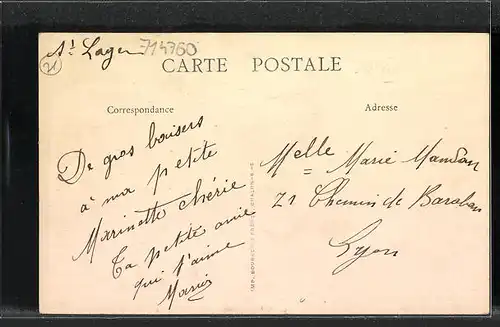 St Lager 714760
21
CARTE POSTALE
Correspondance
Adresse
De gros baisers
à ma petite
Marinette chérie
Ta petite amie
qui t'aime
Maria
Melle Marie Mandon
21 Chemin de Baraban
Lyon